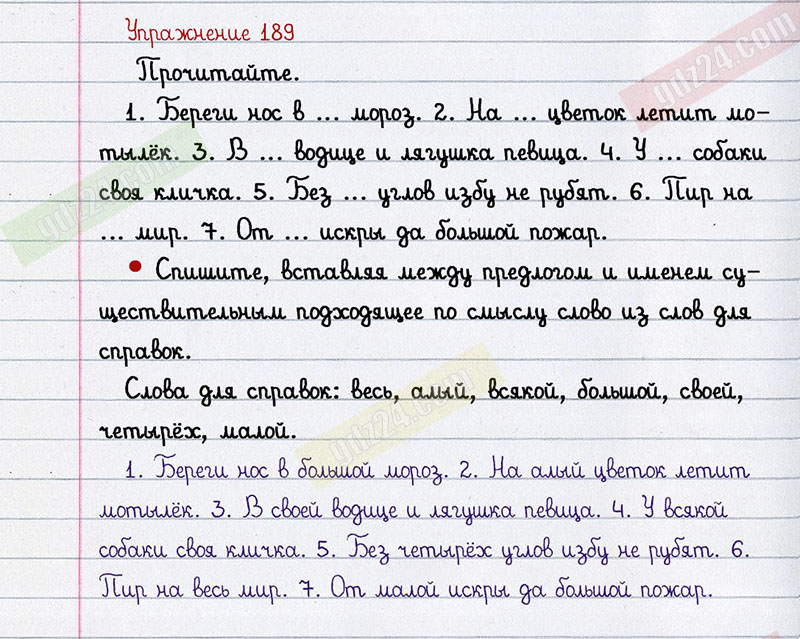 Упражнение 189
Прочитайте.
1. Береги нос в ... мороз. 2. На ... цветок летит мо-
тылёк. 3. В ... водице и лягушка певица. 4. У ... собаки
своя кличка. 5. Без ... углов избу не рубят. 6. Пир на
... мир. 7. От ... искры да большой пожар.
• Спишите, вставляя между предлогом и именем су-
ществительным подходящее по смыслу слово из слов для
справок.
Слова для справок: весь, алый, всякой, большой, своей,
четырёх, малой.
1. Береги нос в большой мороз. 2. На алый цветок летит
мотылёк. 3. В своей водице и лягушка певица. 4. У всякой
собаки своя кличка. 5. Без четырёх углов избу не рубят. 6.
Пир на весь мир. 7. От малой искры да большой пожар.
gdz24.com
gdz24.com
gdz24.com